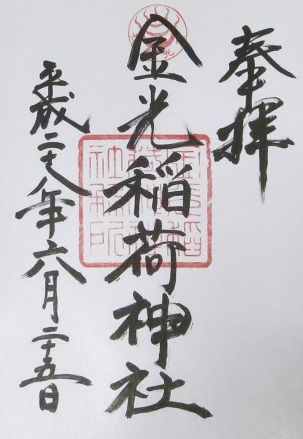 奉拝
金光稲荷神社
平成二十八年六月二十五日